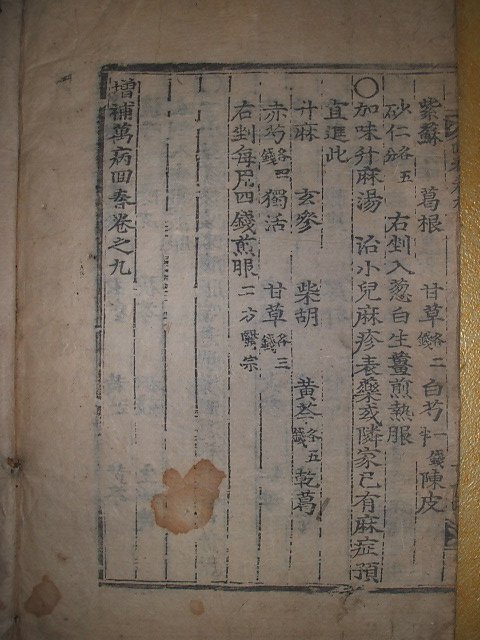 紫蘇 葛根 甘草各二錢 白芍一錢半 陳皮
砂仁各五分 右剉入葱白生薑煎熱服
〇加味升麻湯 治小兒麻疹表藥或隣家已有麻症預
宜進此
升麻 玄參 柴胡 黄芩各五錢 乾葛
赤芍各四錢 獨活 甘草各三錢
右剉每用四錢煎服 二方醫宗
增補萬病回春卷之九